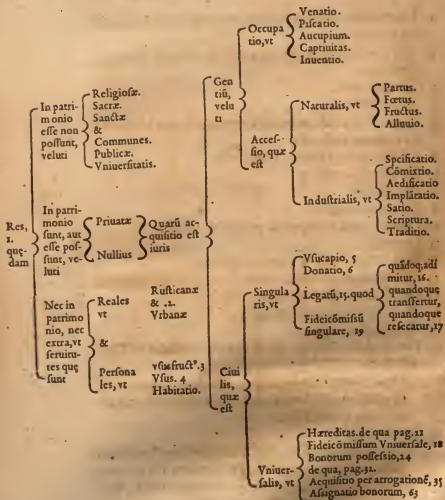 Res,
1.
quędam
In patri-
monio
esse non
possunt,
veluti
Religiosæ.
Sacræ.
Sanctæ
&
Communes.
Publicæ.
Vniuersitatis.
In patri-
monio
sunt, aut
esse pos-
sunt, ve-
luti
Priuatæ
Nullius
Quarũ ac-
quisitio est
iuris
Nec in
patrimo
nio, nec
extra, vt
seruitu-
tes quę
sunt
Reales
vt
&
Persona
les, vt
Rusticanæ
& .2.
Vrbanæ
vsusfruct⁹.3
Vsus. 4
Habitatio.
Gen
tiũ,
velu
ti
Occupa
tio, vt
Venatio.
Piscatio.
Aucupium.
Captiuitas.
Inuentio.
Accef-
sio, quæ
est
Naturalis, vt
Partus.
Fœtus.
Fructus.
Alluuio.
Industrialis, vt
Spcificatio.
Cõmixtio.
Aedificatio
Implãtatio.
Satio.
Scriptura.
Traditio.
Ciui
lis,
quæ
est
Singula
ris, vt
Vsucapio, 5
Donatio, 6
Legatũ, 15. quod
Fideicõmissũ
singulare, 19
quãdoq; adi
mitur, 16.
quandoque
transfertur,
quandoque
resecatur, 17
Vniuer-
salis, vt
Hæreditas. de qua pag. 11
Fideicõmissum Vniuersale, 18
Bonorum possessio, 24
de qua, pag. 32.
Acquisitio per arrogationẽ, 35
Assignatio bonorum, 63